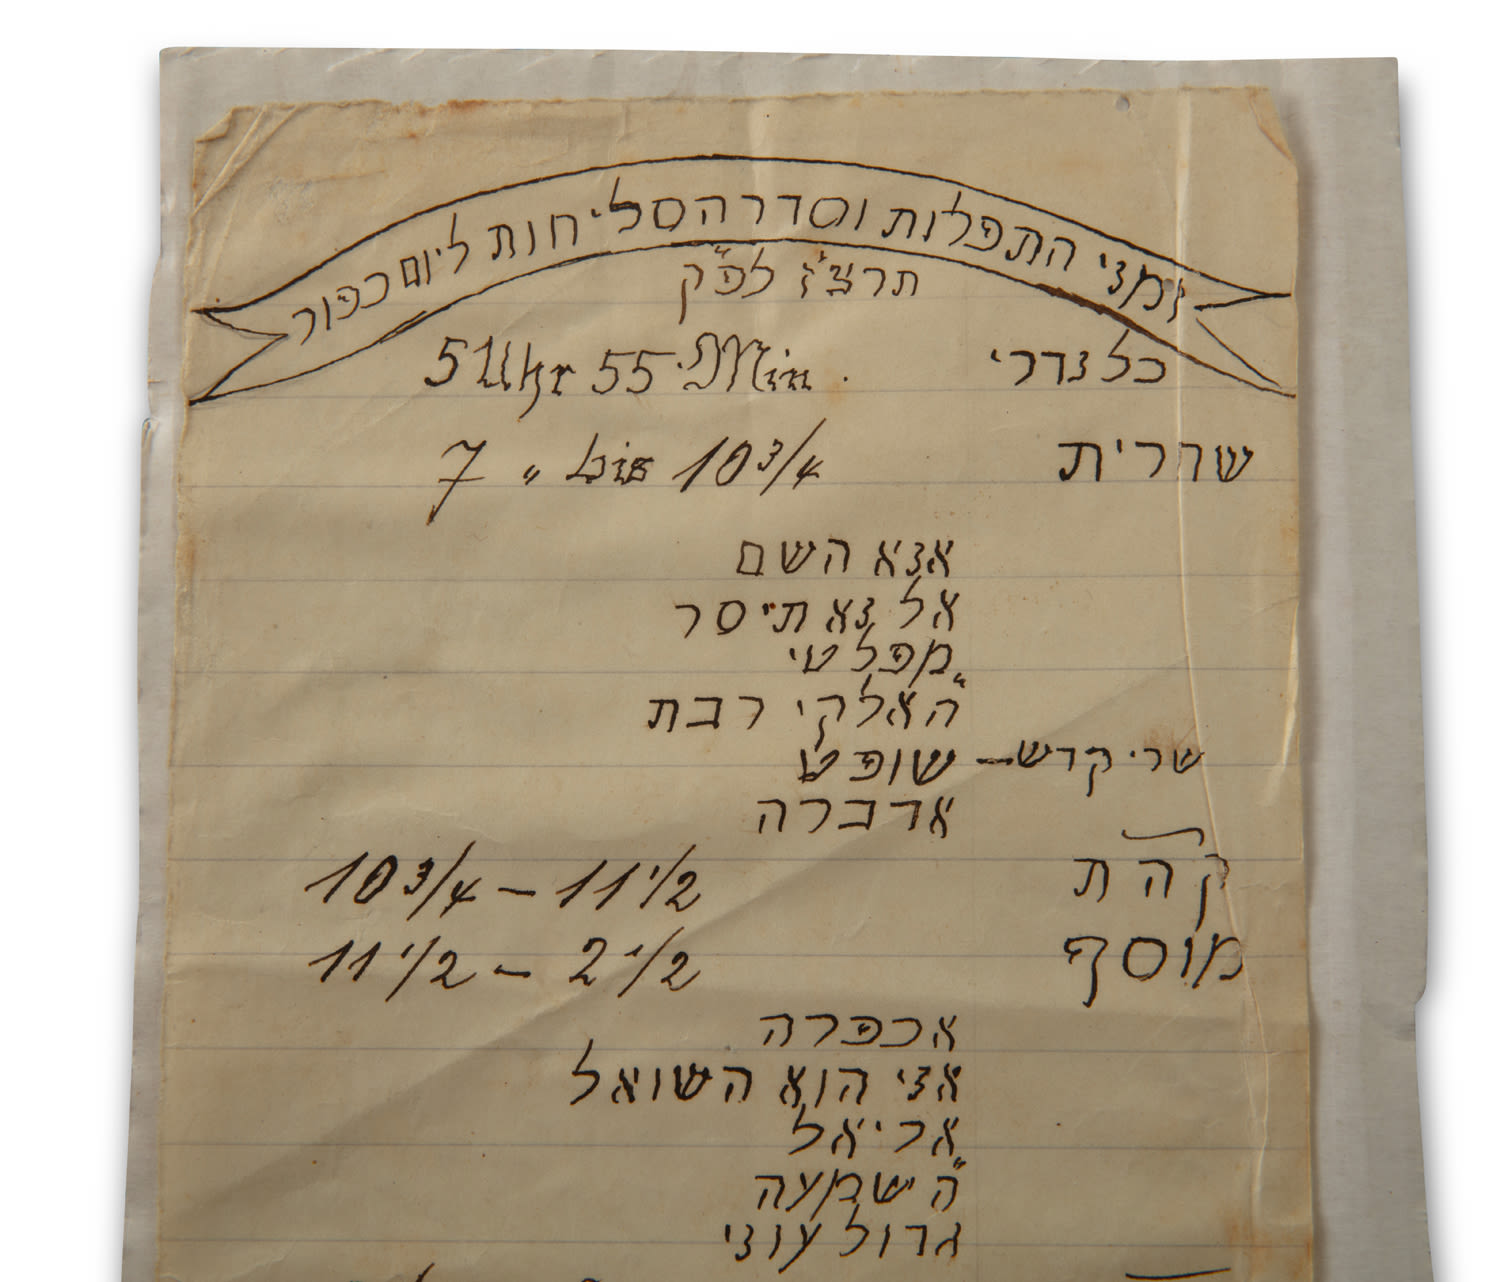 זמני התפלות וסדר הסליחות ליום כפור
תרצ״ז לפ״ק
כל נדרי 5 Uhr 55 Min.
שחרית 7 " bis 10 3/4
אנא השם
אל נא תיסר
מפלטי
ה״ אלקי רבת
שרי קדש – שופט
אדברה
קה״ת 10 3/4 – 11 1/2
מוסף 11 1/2 – 2 1/2
אכפרה
אני הוא השואל
אריאל
ה״ שמעה
גדול עוני